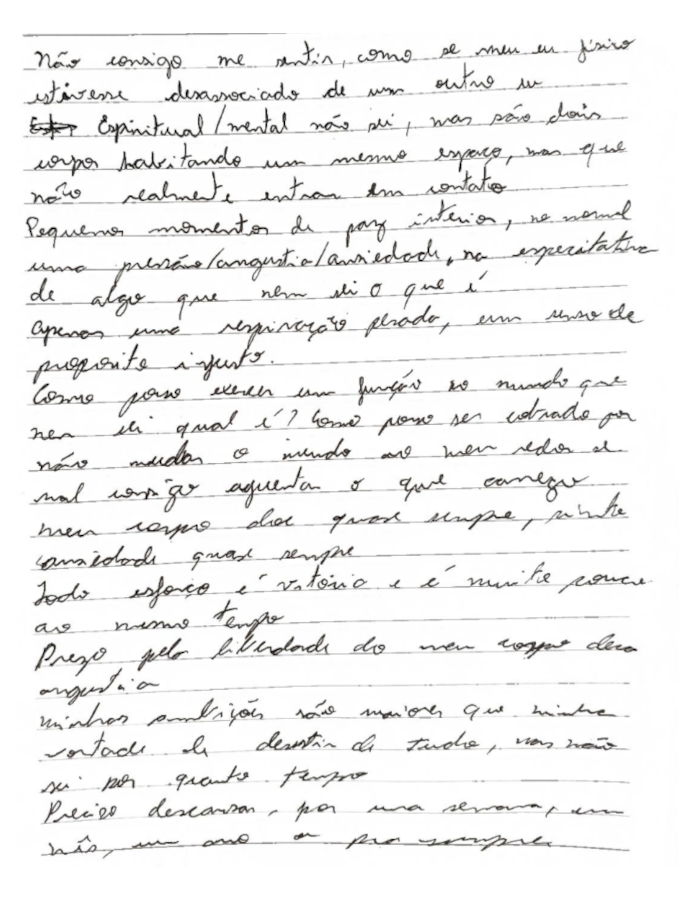 Não consigo me sentir, como se meu eu físico
estivesse desassociado de um outro eu
Espiritual/mental não sei, mas são dois
corpos habitando um mesmo espaço, mas que
não realmente entram em contato
Pequenos momentos de paz interior, no normal
uma pressão/angustia/ansiedade, na espectativa
de algo que nem sei o que é
apenas uma respiração pesada, um senso de
proposito injusto.
Como posso exercer um função no mundo que
nem sei qual é? Como posso ser cobrado por
não mudar o mundo ao meu redor se
mal consigo aguentar o que carrego
meu corpo doe quase sempre, sinto
ansiedade quase sempre
Todo esforço é vitória e é muito pouco
ao mesmo tempo
Prezo pela liberdade do meu corpo dessa
angustia
minhas ambições são maiores que minha
vontade de desistir de tudo, mas não
sei por quanto tempo
Preciso descansar, por uma semana, um
mês, um ano ou pra sempre